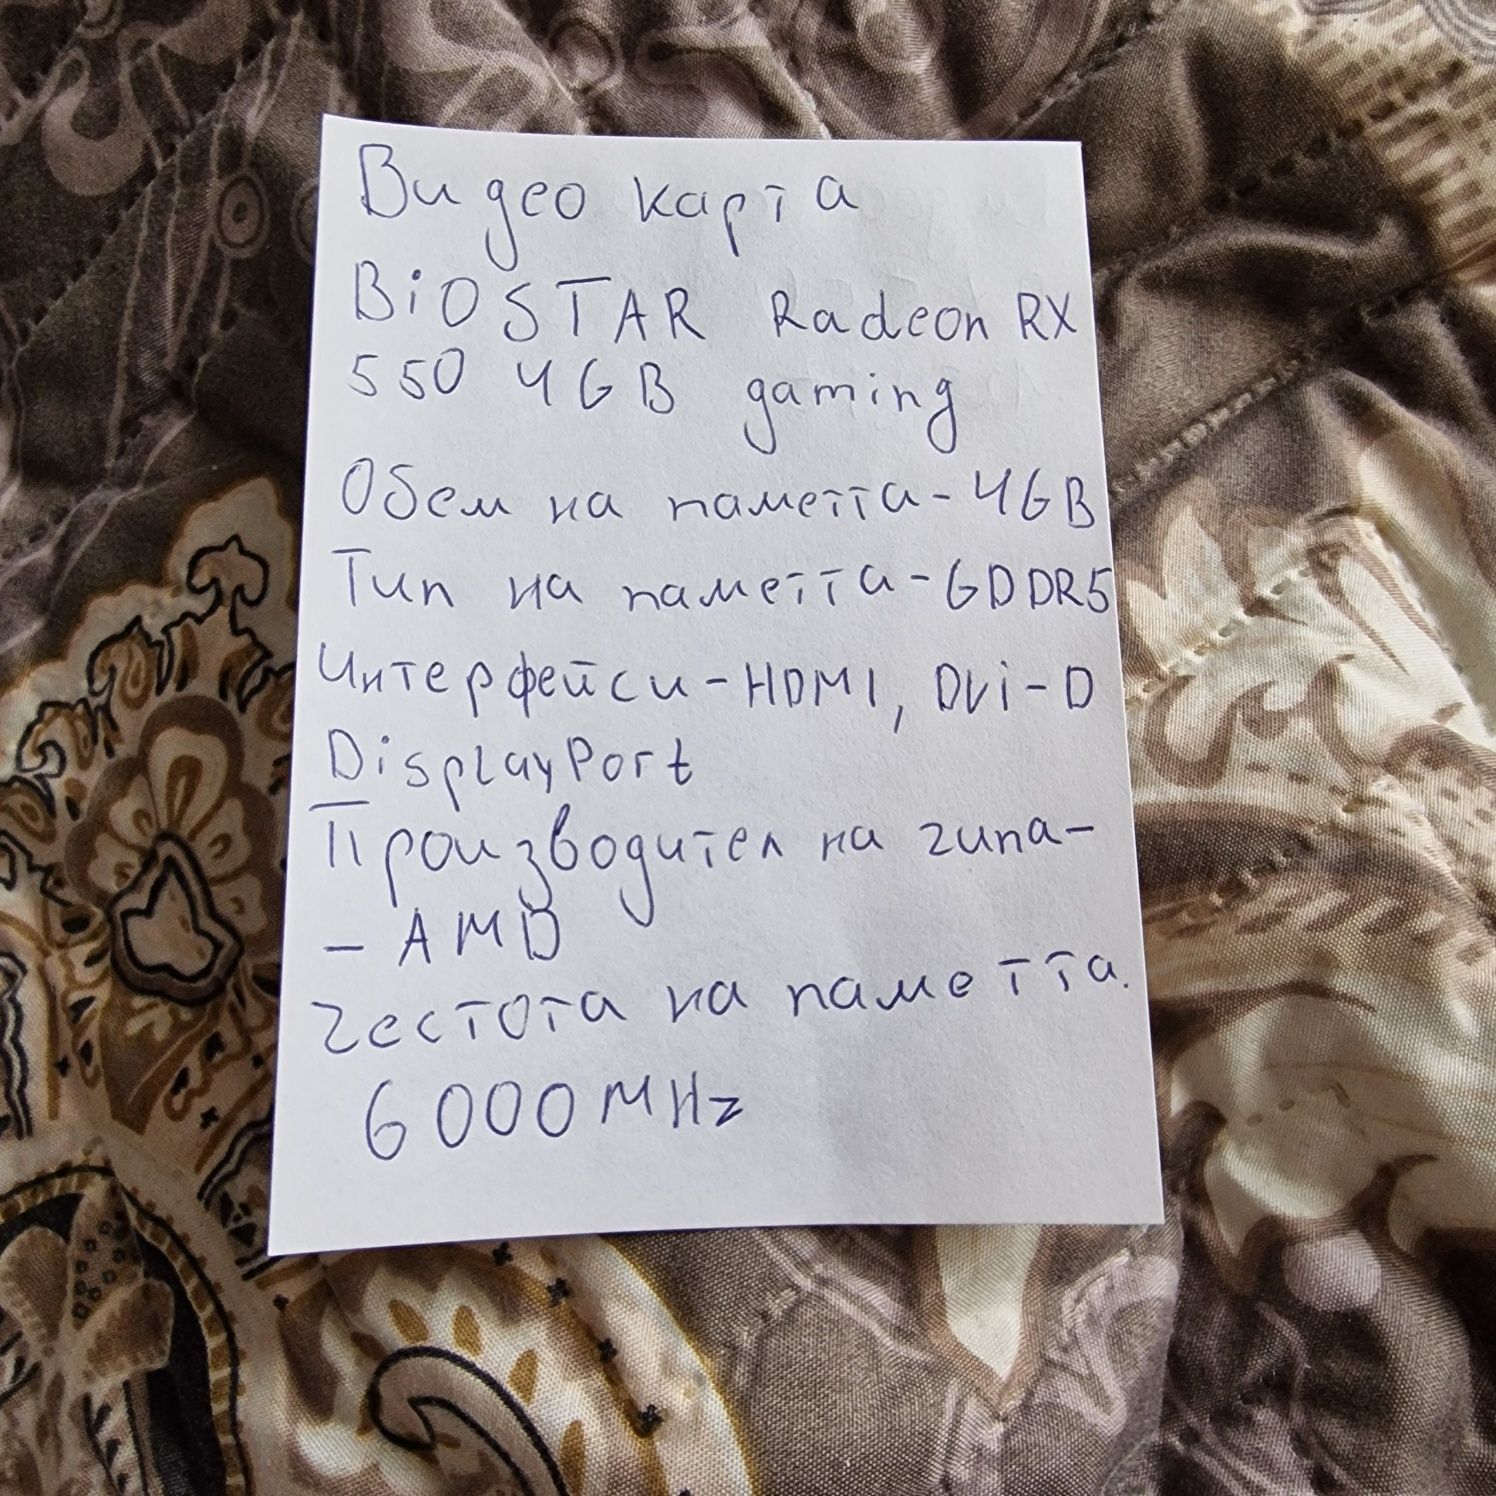 Видео карта
BiOSTAR Radeon RX
550 4GB gaming
Обем на паметта - 4GB
Тип на паметта - GDDR5
Интерфейси - HDMI, DVi-D
DisplayPort
Производител на чипа -
- AMD
Честота на паметта.
6000 MHz